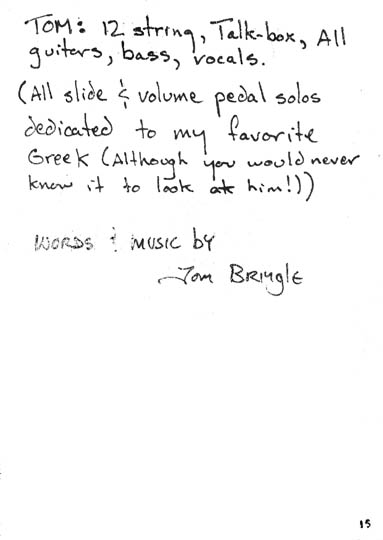 TOM: 12 string, Talk-box, All
guitars, bass, vocals.
(All slide & volume pedal solos
dedicated to my favorite
Greek (Although you would never
know it to look at him!))
WORDS & MUSIC by
Tom BRINGLE
15